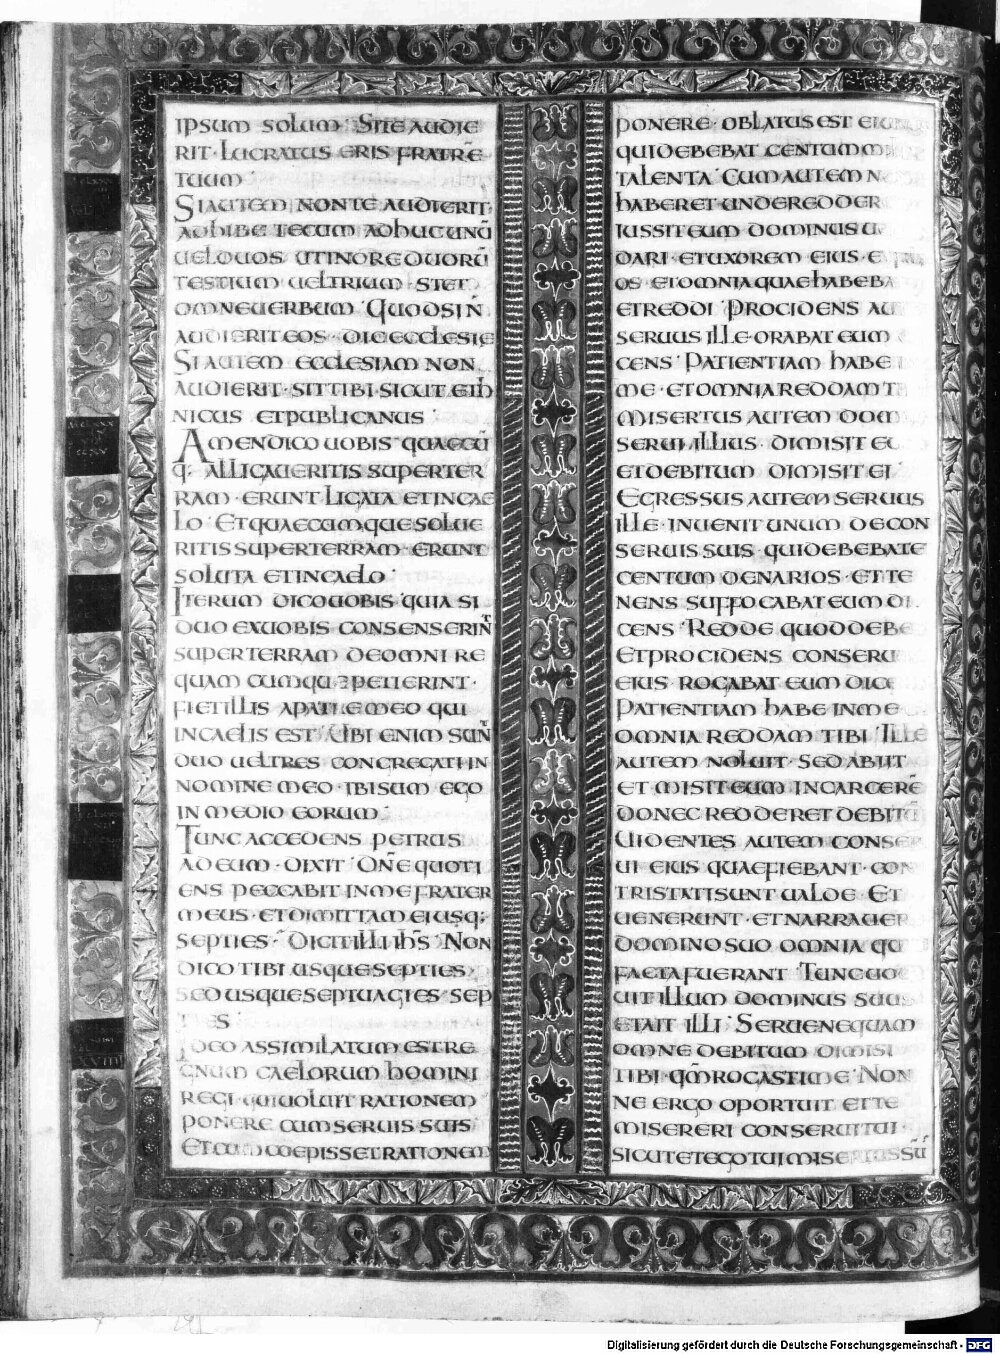 IPSUM SOLUM· SITE AUDIE
RIT· LUCRATUS ERIS FRATRĒ
TUUM
SIAUTEM NONTE AUDIERIT;
ADHIBE TECUM ADHUCUNŪ
UELDUOS UTINOREDUORŪ
TESTIUM UELTRIUM· STET
OMNEUERBUM· QUODSIN̄
AUDIERITEOS· DICECCLESIE
SIAUTEM ECCLESIAM NON
AUDIERIT· SITTIBI· SICUT ETH
NICUS ETPUBLICANUS·
AMENDICOUOBIS· QUAECŪ
Q· ALLIGAUERITIS SUPERTER
RAM· ERUNT LIGATA ETINCAE
LO· ETQUAECUMQUESOLUE
RITISSUPERTERRAM· ERUNT
SOLUTA ETINCAELO·
ITERUM DICOUOBIS· QUIA SI
DUO EXUOBIS CONSENSERIN̄T
SUPERTERRAM DEOMNI RE
QUAM CUMQU;PETIERINT·
FIETILLIS APATREMEO QUI
INCAELIS EST· UBI ENIM SUN̄T
DUO UELTRES CONGREGATI IN
NOMINE MEO· IBISUM EGO
IN MEDIO EORUM·
TUNCACCEDENS PETRUS
ADEUM· DIXIT· DN̄E QUOTI
ENS PECCABIT INME FRATER
MEUS· ETDIMITTAM EIUSQ;
SEPTIES· DICITILLI IHS̄· NON
DICO TIBI USQUESEPTIES·
SEDUSQUESEPTUAGIES· SEP
TIES·
IDEO ASSIMILATUM ESTRE
GNUM CAELORUM HOMINI
REGI· QUIUOLUIT RATIONEM
PONERE CUMSERUIS SUIS·
ETCUMCOEPISSETRATIONEM
PONERE· OBLATUSEST EI
QUIDEBEBAT CENTUM M
TALENTA· CUMAUTEM N
HABERET· UNDEREDDER
IUSSITEUM DOMINUS
DARI· ETUXOREM EIUS· E
OS· ETOMNIAQUAEHABEBA
ETREDDI· PROCIDENS AU
SERUUS ILLE· ORABAT EUM
CENS· PATIENTIAM HABE
ME· ETOMNIAREDDAM T
MISERTUS AUTEM DOM
SERUI ILLIUS· DIMISIT EU
ETDEBITUM DIMISIT EI·
EGRESSUS AUTEM SERUUS
ILLE· INUENIT UNUM DECON
SERUIS SUIS· QUIDEBEBATE
CENTUM DENARIOS· ETTE
NENS SUFFOCABATEUM DI
CENS· REDDE QUODDEBE
ETPROCIDENS CONSERU
EIUS· ROGABAT EUM DICE
PATIENTIAM HABE INME
OMNIA REDDAM TIBI· ILLE
AUTEM NOLUIT· SEDABIIT
ET MISITEUM INCARCERĒ
DONEC REDDERET DEBITŪ
UIDENTES AUTEM CONSER
UI EIUS QUAEFIEBANT· CON
TRISTATISUNT UALDE· ET
UENERUNT· ETNARRAUER
DOMINOSUO OMNIA QU
FACTAFUERANT· TUNCUO
UITILLUM DOMINUS SUUS
ETAIT ILLI· SERUENEQUAM
OMNE DEBITUM DIMISI
TIBI· QM̄ROGASTIME· NON
NE ERGO OPORTUIT ETTE
MISERERI CONSERUITUI·
SICUTETEGOTUIMISERTUSSŪ
Digitalisierung gefördert durch die Deutsche Forschungsgemeinschaft - DFG